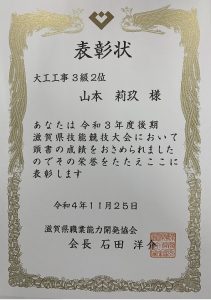 表彰状
大工工事3級2位
山本 莉玖 様
あなたは令和3年度後期
滋賀県技能競技大会において
頭書の成績をおさめられました
のでその栄誉をたたえここに
表彰します
令和4年11月25日
滋賀県職業能力開発協会
会長 石田 洋介